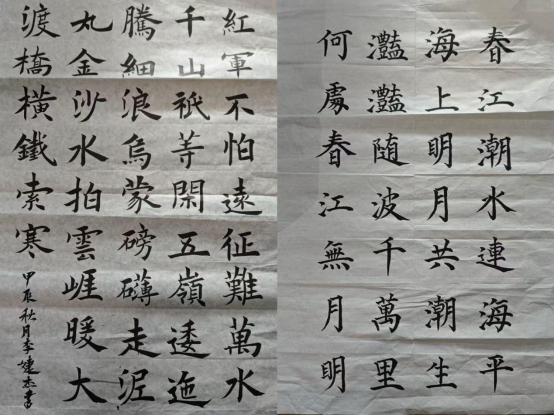 紅軍不怕遠征難萬水
千山祇等閑五嶺逶迤
騰細浪烏蒙磅礴走泥
丸金沙水拍雲崕暖大
渡橋橫鐵索寒
甲辰秋月李杰書
春江潮水連海平
海上明月共潮生
灩灩随波千萬里
何處春江無月明